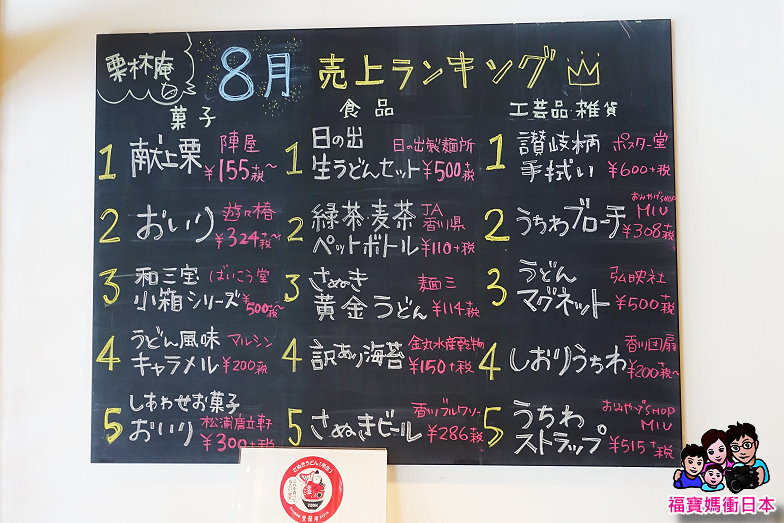 栗林庵
8月 売上ランキング
菓子
1 献上栗 陣屋 ¥155+税~
2 おいり 遊々椿 ¥324+税~
3 和三宝 小箱シリーズ ばいこう堂 ¥500+税~
4 うどん風味 キャラメル マルシン ¥200+税
5 しあわせお菓子 おいり 松浦唐立軒 ¥300+税
食品
1 日の出 生うどんセット 日の出製麺所 ¥500+税
2 緑茶・麦茶 ペットボトル JA香川県 ¥110+税
3 さぬき 黄金うどん 麺三 ¥114+税
4 訳あり海苔 金丸水産乾物 ¥150+税
5 さぬきビール 香川ブルワリー ¥286+税
工芸品・雑貨
1 讃岐柄 手拭い ポスター堂 ¥600+税
2 うちわブローチ おみやげSHOP MIU ¥308+税
3 うどん マグネット 弘映社 ¥500+税
4 しおりうちわ 香川団扇 ¥200+税~
5 うちわ ストラップ おみやげSHOP MIU ¥515+税
福寶媽衝日本